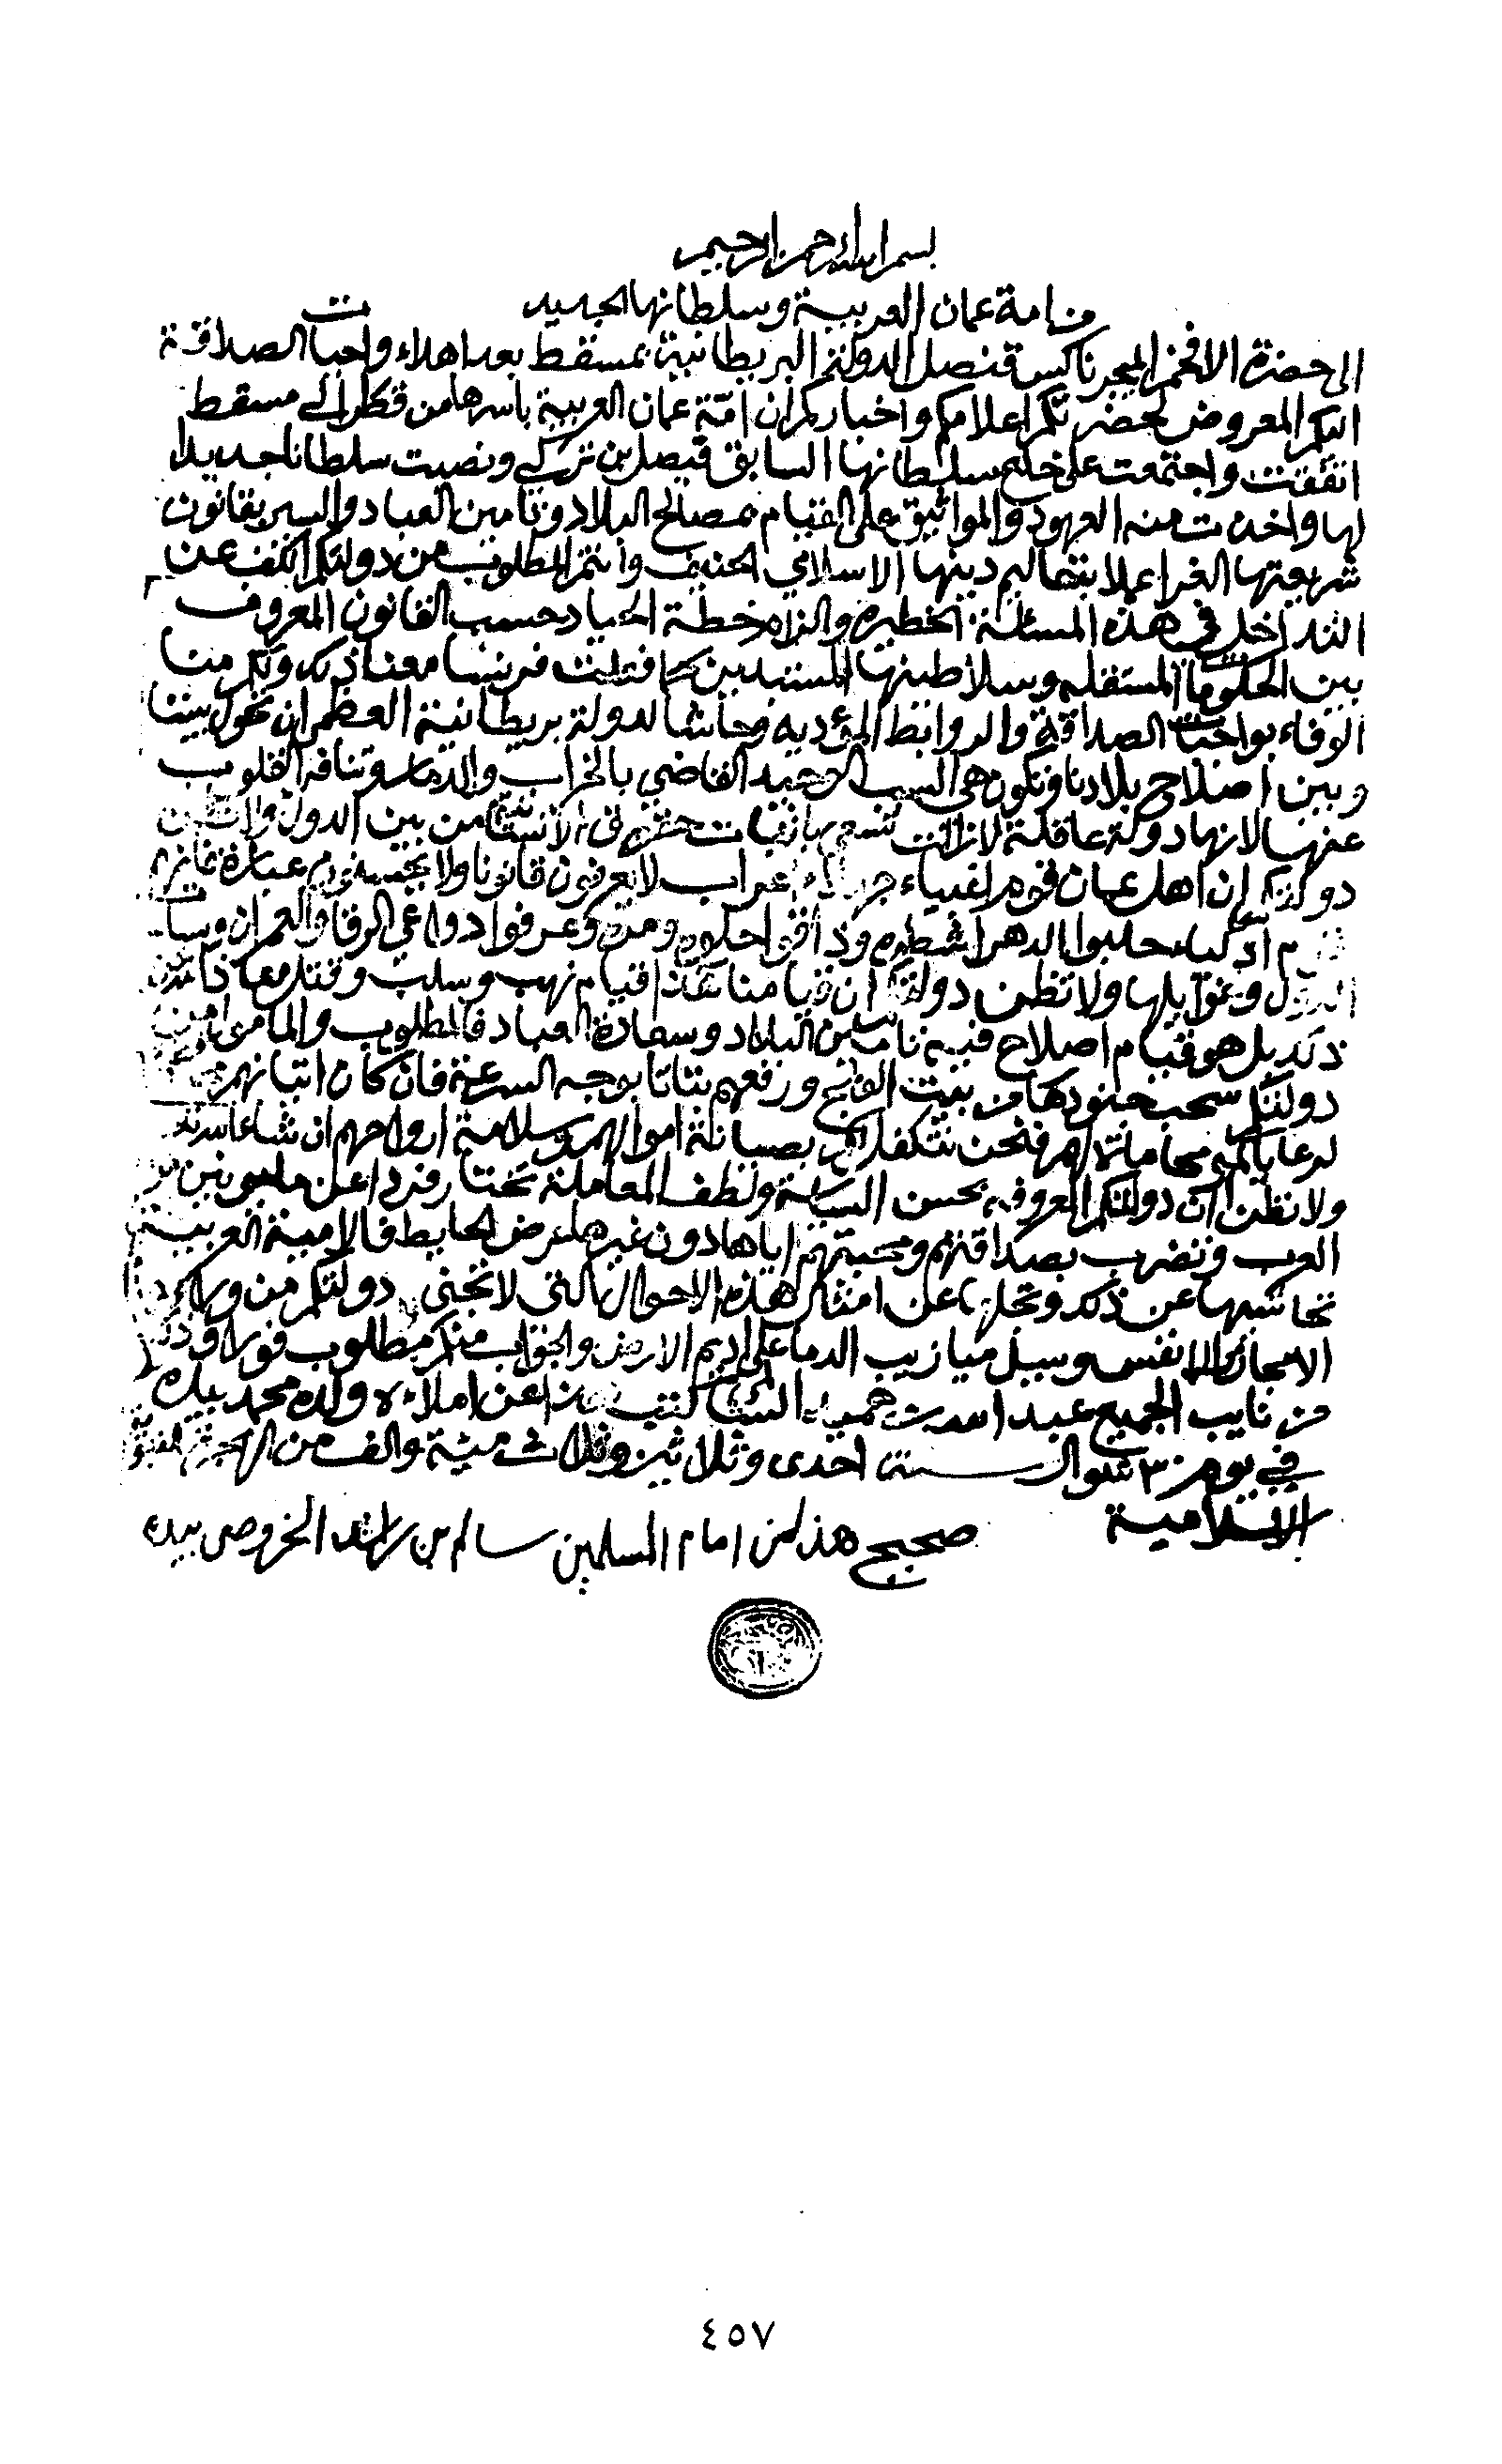 بسم الله الرحمن الرحيم
من امة عمان العربية وسلطانها الجديد
الى حضرة الافخم الميجر ناكس قنصل الدولة البريطانية بمسقط بعد اهداء واجبات الصداقة
اليكم المعروض لحضرتكم اعلامكم واخباركم ان امّة عمان العربية باسرها من قطر الى مسقط
اتفقت واجتمعت على خلع سلطانها السابق فيصل بن تركي ونصبت سلطانا جديدا
لها واخذت منه العهود والمواثيق على القيام بمصالح البلاد وتامين العباد والسير بقانون
شريعتها الغرا عملا بتعاليم دينها الاسلامي الحنيف وانتم المطلوب من دولتكم الكف عن
التداخل في هذه المسئلة الخطيره والزام خطة الحياد حسب القانون المعروف
بين الحكومات المستقله وسلاطينها المستبدين كما فعلت فرنسا معنا ذلك ولكم منا
الوفاء بواجبات الصداقة والروابط المؤديه وحاشا لدولة بريطانية العظمى ان تحول بيننا
وبين اصلاح بلادنا وتكون هي السبب الوحيد القاضي بالخراب والدمار وتنافر القلوب
عنها لانها دولة عاقلة لا زالت من بين الدول
دولتكم ان اهل عمان قوم اغبياء اعراب لا يعرفون قانونا ولا عبارة
حلبوا الدهر اشطره وذاقوا حلوه ومره وعرفوا دواعي الرقا والعمران
ولا تظن دولتكم ان قيامنا هذا قيام نهب وسلب وقتل معاذ الله من
ذلك بل هو قيام اصلاح فيه تامين البلاد وسعادة العباد فالمطلوب والمامول من
دولتكم سحب جنودها من بيت الفلج ورفعهم بتاتا بوجه السرعة فان كان اتيانهم
لرعاياكم محاماة لهم فنحن نتكفل لكم بصيانة اموالهم وسلامة ارواحهم ان شاء الله
ولا نظن ان دولتكم المعروفه بحسن السياسة ولطف المعاملة تختار فردا عن مليونين من
العرب وتضرب بصداقتهم ومحبتهم اياها دون غيرها عرض الحايط فالامة العربية
تحاشيها عن ذلك وتجلها عن امثال هذه الاحوال التي لا تجني دولتكم من وراء
الانفس وسيل ميازيب الدما على اديم الارض والجواب منكم مطلوب فورا
من نايب الجميع عبد الله بن حميد السالمي كتب هذا عن املاءه ولده محمد بيده
في يوم ٣ شوال سنة احدى وثلاثين وثلاث مئة والف من الهجرة
الاسلامية
صحيح هذا من امام المسلمين سالم بن راشد الخروصي بيده
٤٥٧